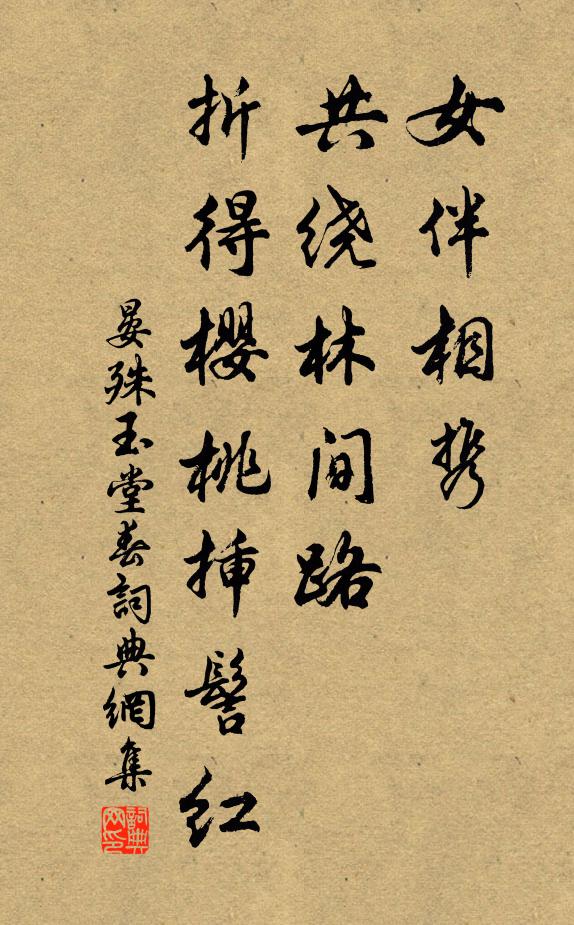 女伴相携
共绕林间路
折得櫻桃插髻红
晏殊玉堂春詞典網集
詞典网印